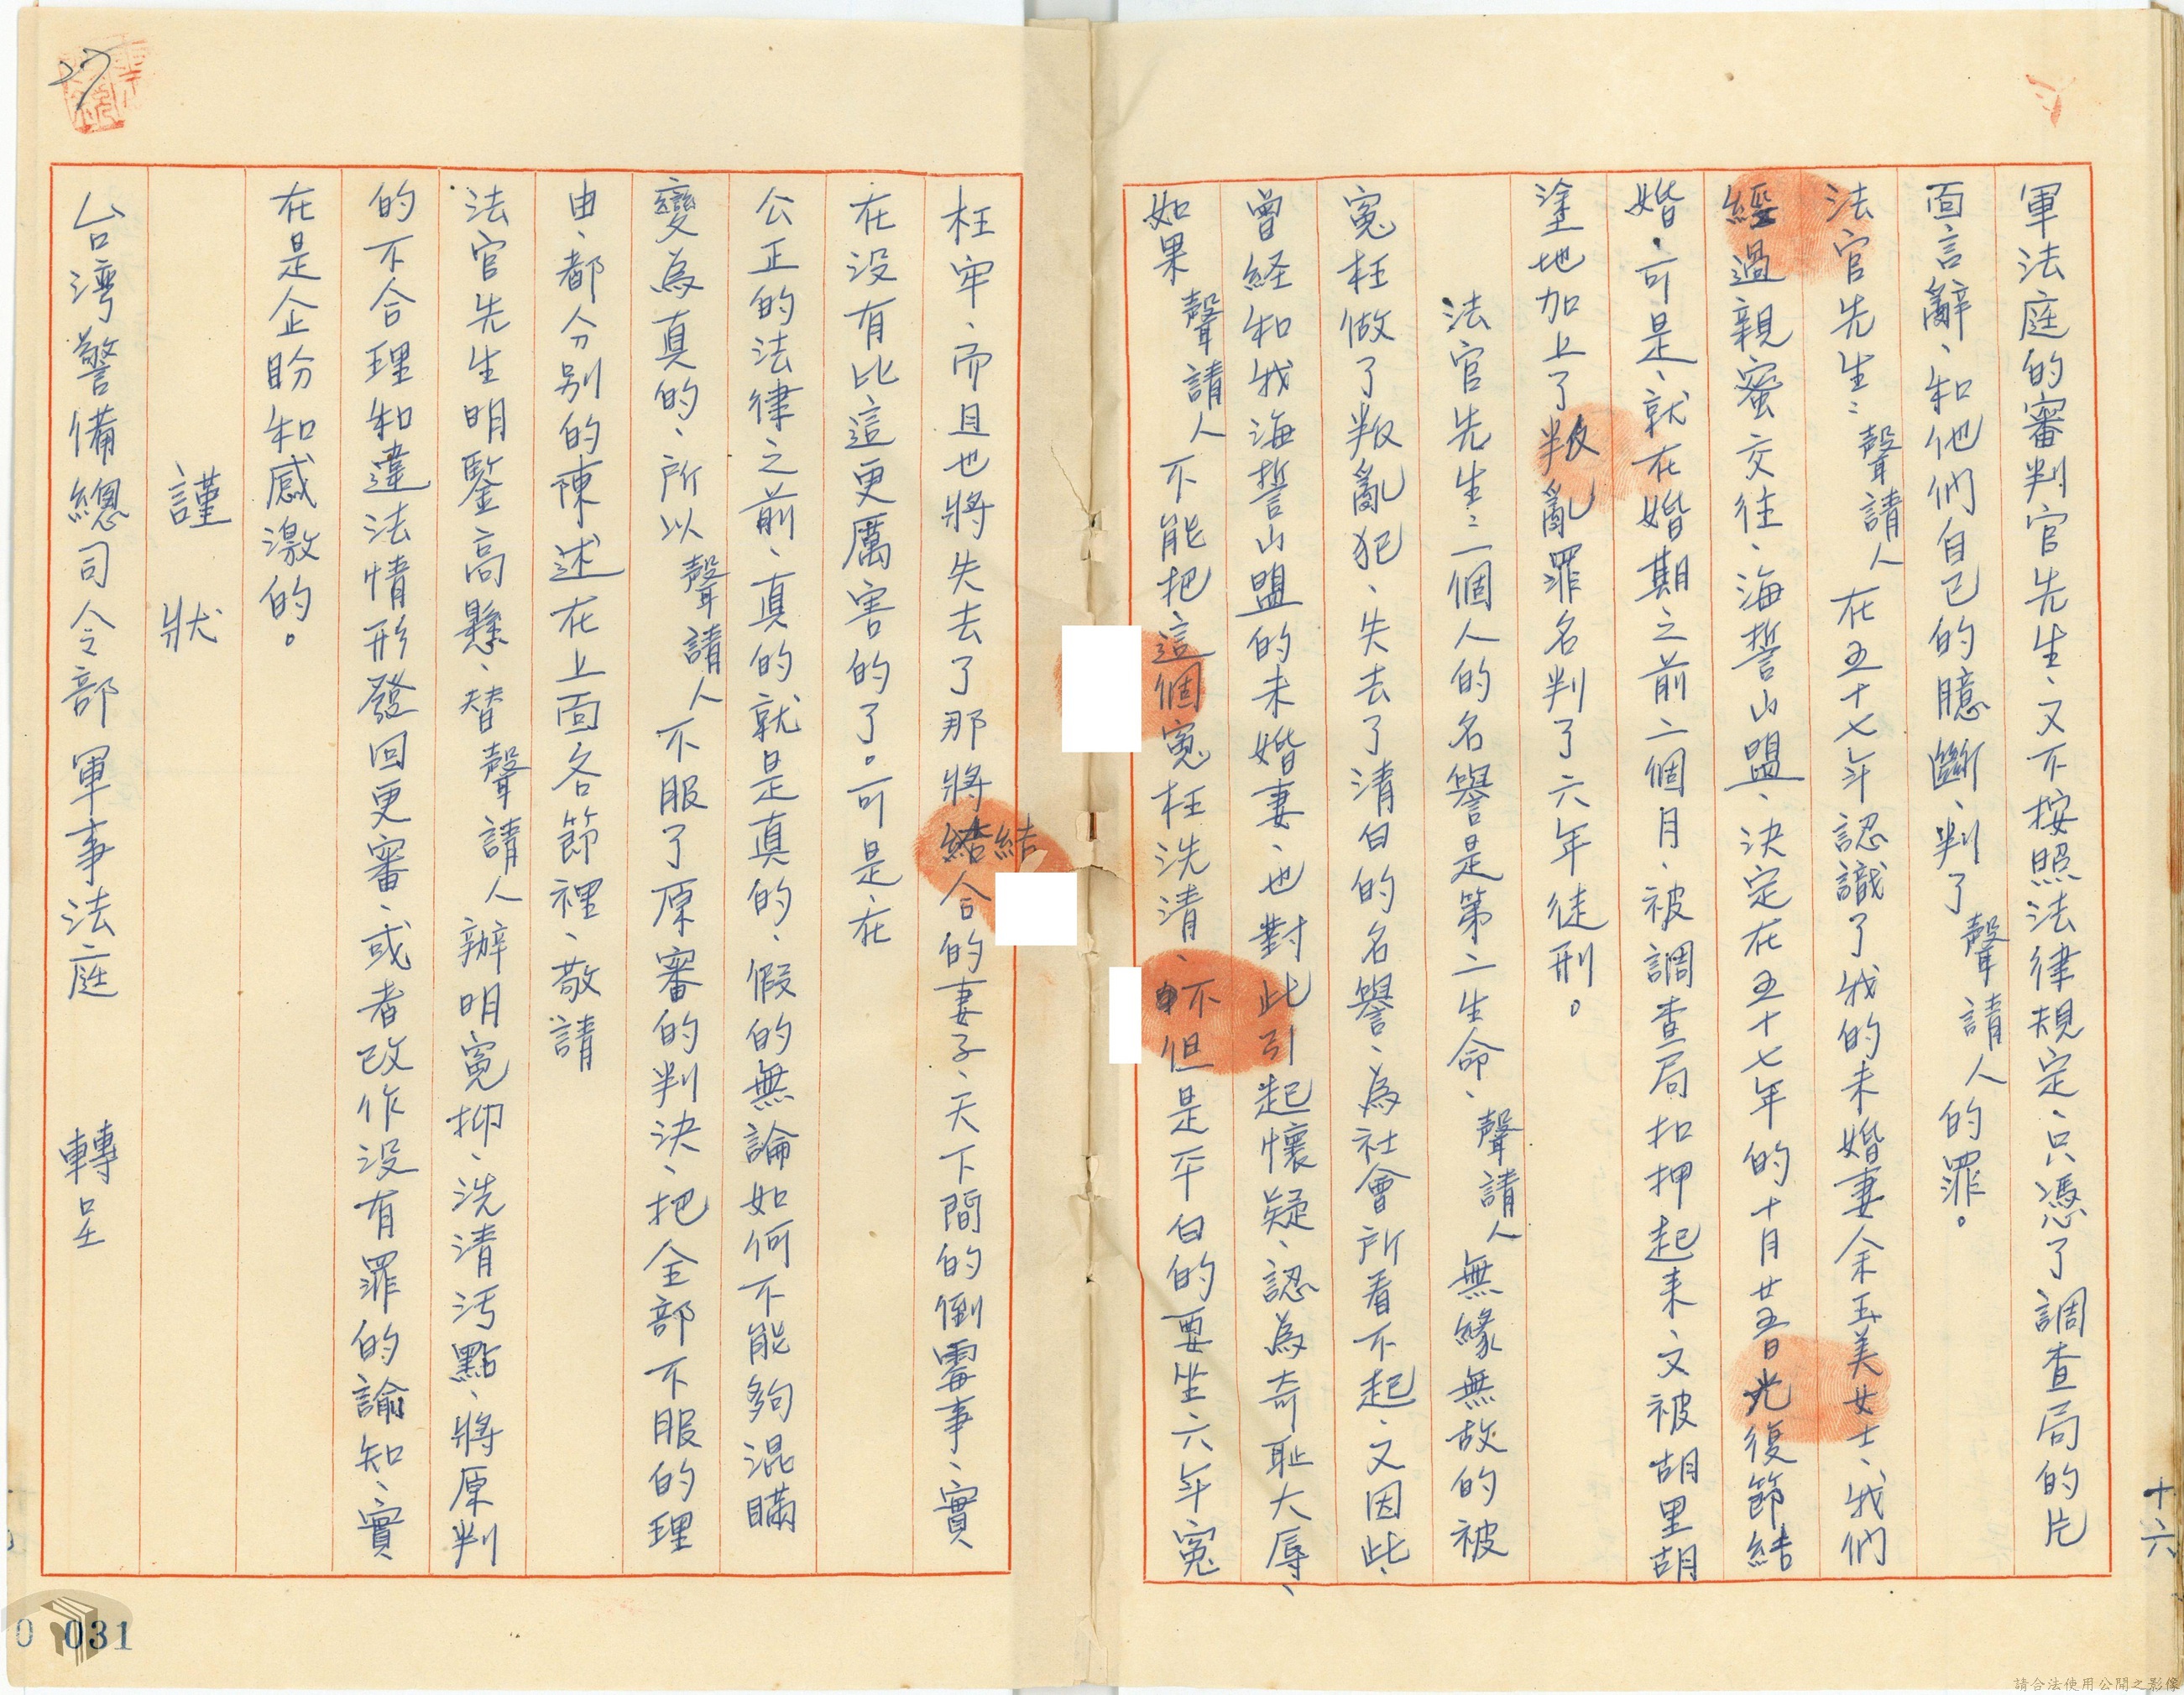 十六
軍法庭的審判官先生、又不按照法律規定、只憑了調查局的片
面言辭、和他們自己的臆斷、判了聲請人的罪。
法官先生：聲請人在五十七年認識了我的未婚妻余玉美女士、我們
經過親蜜交往、海誓山盟、決定在五十七年的十月廿五日光復節結
婚、可是、就在婚期之前二個月、被調查局扣押起来、又被胡里胡
塗地加上了叛亂罪名判了六年徒刑。
法官先生：一個人的名譽是第二生命、聲請人無緣無故的被
冤枉做了叛亂犯、失去了清白的名譽、為社會所看不起、又因此、
曾経和我海誓山盟的未婚妻、也對此引起懷疑、認為奇恥大辱、
如果聲請人不能把這個冤枉洗清、不但是平白的要坐六年冤
枉牢、而且也將失去了那將結合的妻子、天下間的倒霉事、實
在没有比這更厲害的了。可是在
公正的法律之前、真的就是真的、假的無論如何不能夠混瞞
變為真的、所以聲請人不服了原審的判決、把全部不服的理
由、都分别的陳述在上面各節裡、敬請
法官先生明鑒高懸、替聲請人辦明冤抑、洗清污點、將原判
的不合理和違法情形發回更審、或者改作没有罪的諭知、實
在是企盼和感激的。
謹狀
台灣警備總司令部軍事法庭 轉呈
27
0 031
請合法使用公開之影像